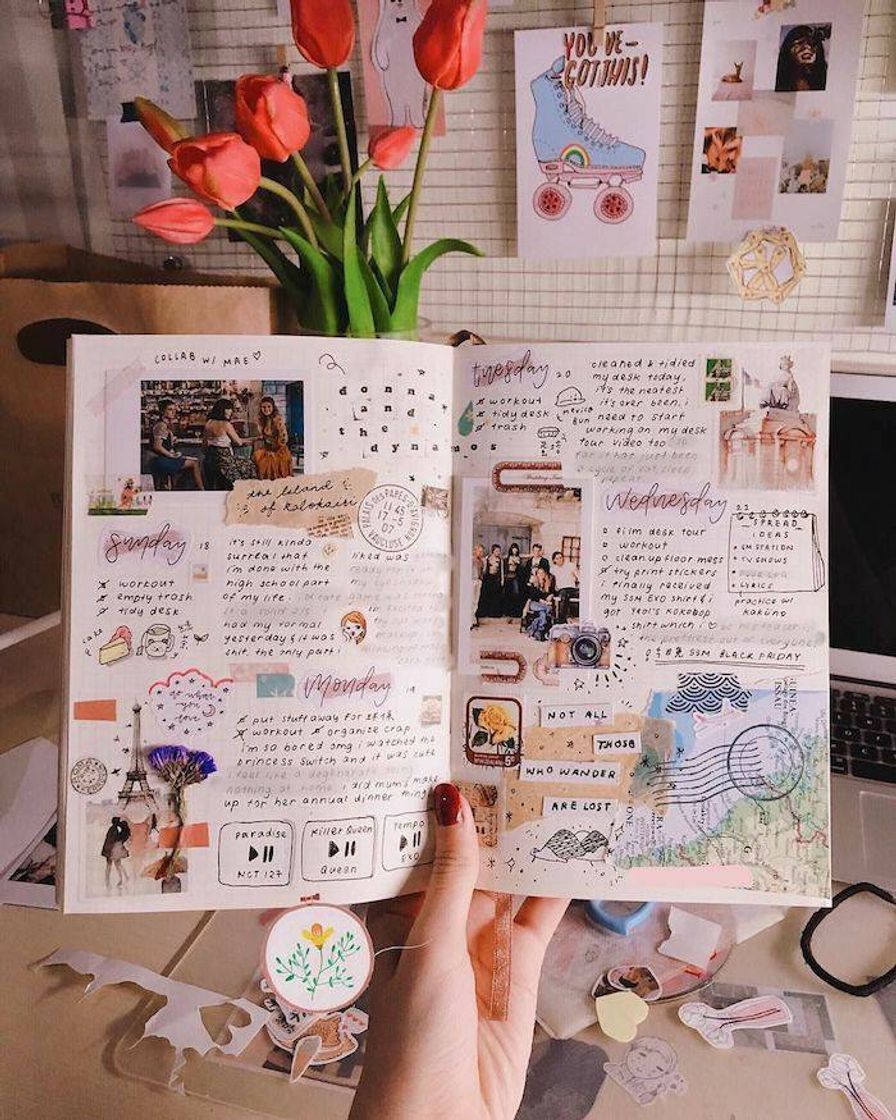 YOU'VE—
GOT THIS!
COLLAB W/ MAE♡
donna
and
the
dynamos
the island
of kalokairi
PALAIS DES PAPES
11 45
17 -5
07
VAUCLUSE
Sunday 18
workout
empty trash
tidy desk
cake
it's still kinda
surreal that
i'm done with the
high school part
of my life.
had my formal
yesterday & it was
shit. the only part i
liked was
do what
you
love
Monday 19
put stuff away for
workout organize crap
i'm so bored omg i watched the
princess switch and it was cute
i feel like a degenerate
nothing at home. i did mum's make
up for her annual dinner thing
Paradise
NCT 127
Killer Queen
Queen
Tempo
EXO
tuesday 20
workout
tidy desk
trash
mexico
bun
cleaned & tidied
my desk today.
it's the neatest
it's ever been. i
need to start
working on my desk
tour video too
Wednesday 21
film desk tour
workout
clean up floor mess
try print stickers
i finally received
my SSM EXO shirt & i
got Yeol's Kokobop
shirt which i ♡
the prettiest out of everyone
SSM BLACK FRIDAY
SPREAD
IDEAS
SM STATION
TV SHOWS
LYRICS
practice w/
kakuno
5c
NOT ALL
THOSE
WHO WANDER
ARE LOST